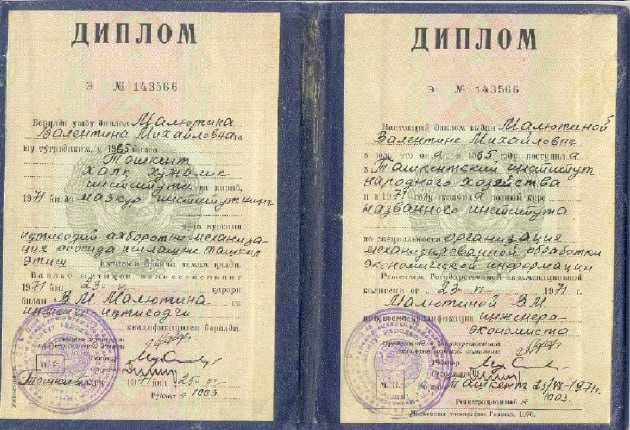 ДИПЛОМ
Э № 143566
Берилди ушбу диплом Малютина
Валентина Михайловна
шу тўғридаким, у 1965 йилда
Тошкент
халқ хўжалик
институти
1971 йилда мазкур институтнинг
тўла курсини
иқтисодий ахборотни механиза-
ция асосида ишлашни ташкил
этиш
1971 йил 23 қарори
билан В.М. Малютина
инженер иқтисодчи
квалификацияси берилди.
1003
ДИПЛОМ
Э № 143566
Настоящий диплом выдан Малютиной
Валентине Михайловне
в том, что она в 1965 году поступила
в Ташкентский институт
народного хозяйства
и в 1971 году окончила полный курс
названного института
по специальности организация
механизированной обработки
экономической информации
Решением Государственной экзаменационной
комиссии от 23 1971 г.
Малютиной В.М.
присвоена квалификация инженера-
экономиста
Ректор
Секретарь
Ташкент 1971 г.
Регистрационный № 1003
Московская типография Гознака. 1970.